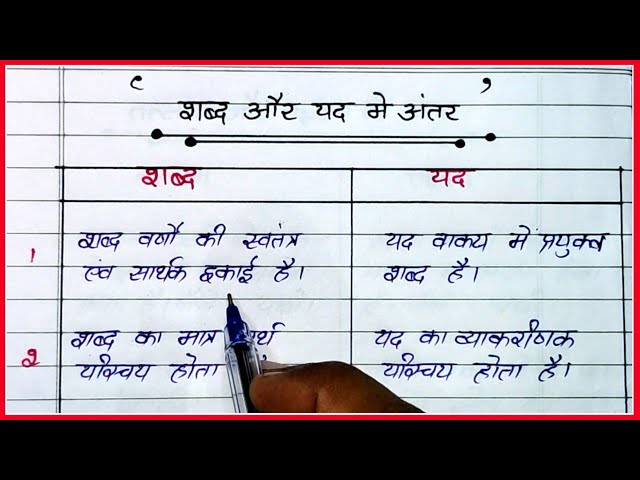 शब्द और पद मे अंतर
शब्द
पद
१
शब्द वर्णों की स्वतंत्र
एवं सार्थक इकाई है।
पद वाक्य में प्रयुक्त
शब्द है।
२
शब्द का मात्र
परिचय होता
पद का व्याकरणिक
परिचय होता है।